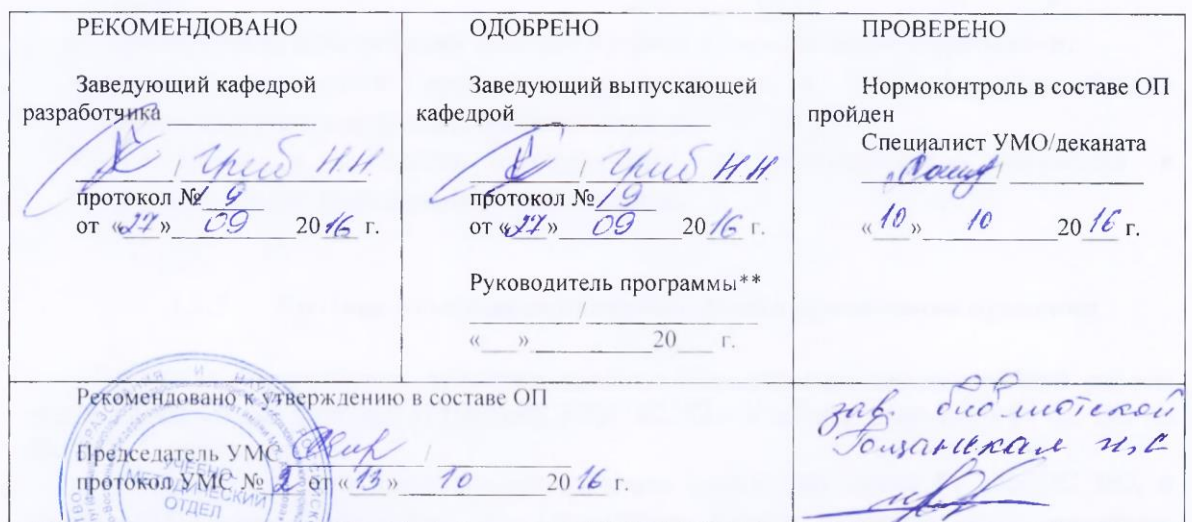 РЕКОМЕНДОВАНО
Заведующий кафедрой
разработчика
/ Гриб Н.Н.
протокол № 19
от «27» 09 2016 г.
ОДОБРЕНО
Заведующий выпускающей
кафедрой
/ Гриб Н.Н
протокол № 19
от «27» 09 2016 г.
Руководитель программы**
/
« » 20 г.
ПРОВЕРЕНО
Нормоконтроль в составе ОП
пройден
Специалист УМО/деканата
/
«10» 10 2016 г.
Рекомендовано к утверждению в составе ОП
Председатель УМС /
протокол УМС № 2 от «13» 10 2016 г.
УЧЕБНО
МЕТОДИЧЕСКИЙ
ОТДЕЛ
зав. библиотекой